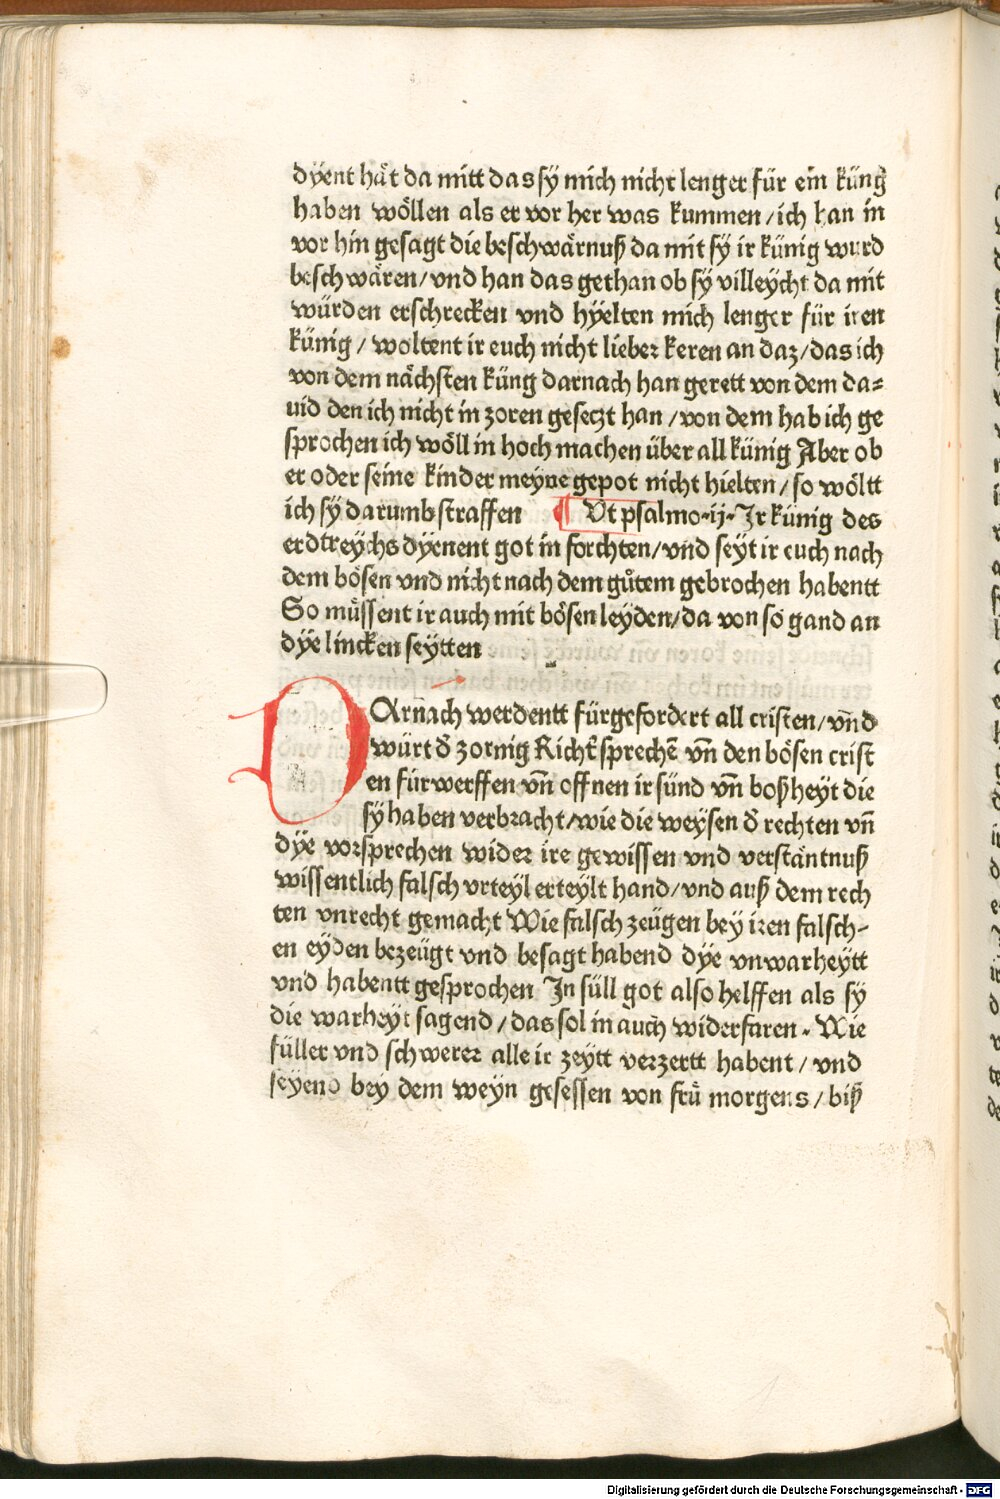 dyent hät da mitt das sy mich nicht lenger für ein küng
haben wöllen als er vor her was kummen/ich han in
vor hin gesagt die beschwärnuß da mit sy ir künig wurd
beschwären/vnd han das gethan ob sy villeycht da mit
würden erschrecken vnd hyelten mich lenger für iren
künig/woltent ir euch nicht lieber keren an daz/das ich
von dem nächsten küng darnach han gerett von dem da⸗
uid den ich nicht in zoren gesetzt han/von dem hab ich ge
sprochen ich wöll in hoch machen über all künig Aber ob
er oder seine kinder meyne gepot nicht hielten/so wöltt
ich sy darumb straffen ¶ Vt psalmo·ij·Ir künig des
erdtreychs dyenent got in forchten/vnd seyt ir euch nach
dem bösen vnd nicht nach dem gůtem gebrochen habentt
So müssent ir auch mit bösen leyden/da von so gand an
dye lincken seytten
DArnach werdentt fürgefordert all cristen/vn̄d
würt d̕ zornig Richt̕ sprechē vn̄ den bösen crist
en fürwerffen vn̄ offnen ir sünd vn̄ boßheyt die
sy haben verbracht/wie die weysen d̕ rechten vn̄
dye vorsprechen wider ire gewissen vnd verstäntnuß
wissentlich falsch vrteyl erteylt hand/vnd auß dem rech
ten vnrecht gemacht Wie falsch zeügen bey iren falsch⸗
en eyden bezeügt vnd besagt habend dye vnwarheytt
vnd habentt gesprochen In süll got also helffen als sy
die warheyt sagend/das sol in auch widerfaren. Wie
füller vnd schwerer alle ir zeytt verzertt habent/vnd
seyend bey dem weyn gesessen von frü morgens/biß
Digitalisierung gefördert durch die Deutsche Forschungsgemeinschaft - DFG